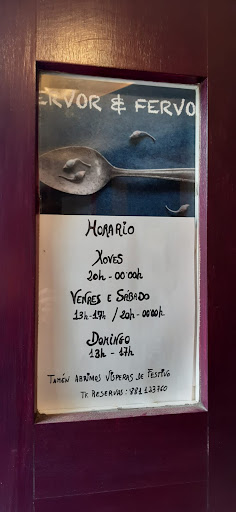 ERVOR & FERVO
HORARIO
XOVES
20h - 00:00h
VENRES E SÁBADO
13h-17h / 20h-00:00h
DOMINGO
13h - 17h
TAMÉN ABRIMOS VÍSPERAS DE FESTIVO
TF. RESERVAS: 881 123760